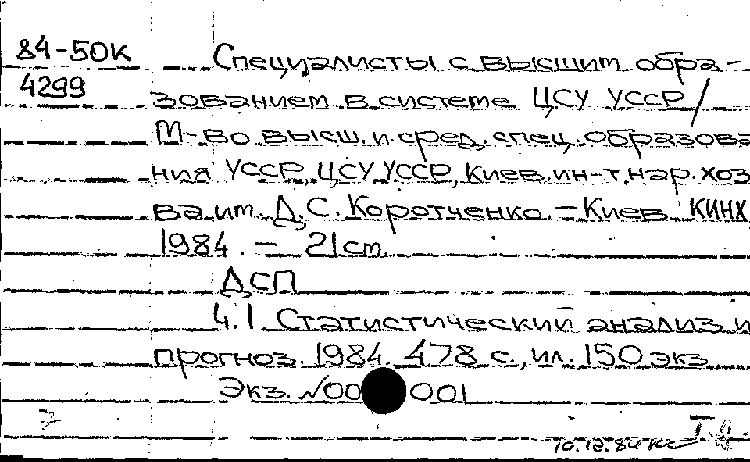 84-50к Специалисты с высшим обра-
4299 зованием в системе ЦСУ УССР/
М-во высш. и сред. спец. образова
ния УССР, ЦСУ УССР, Киев. ин-т нар. хоз
ва им. Д.С. Коротченко. – Киев КИНХ
1984. – 21 см
ДСП
4.1 Статистический анализ и
прогноз. 1984. 478 с., ил. 150 экз
Экз. №00 001
10.12.84